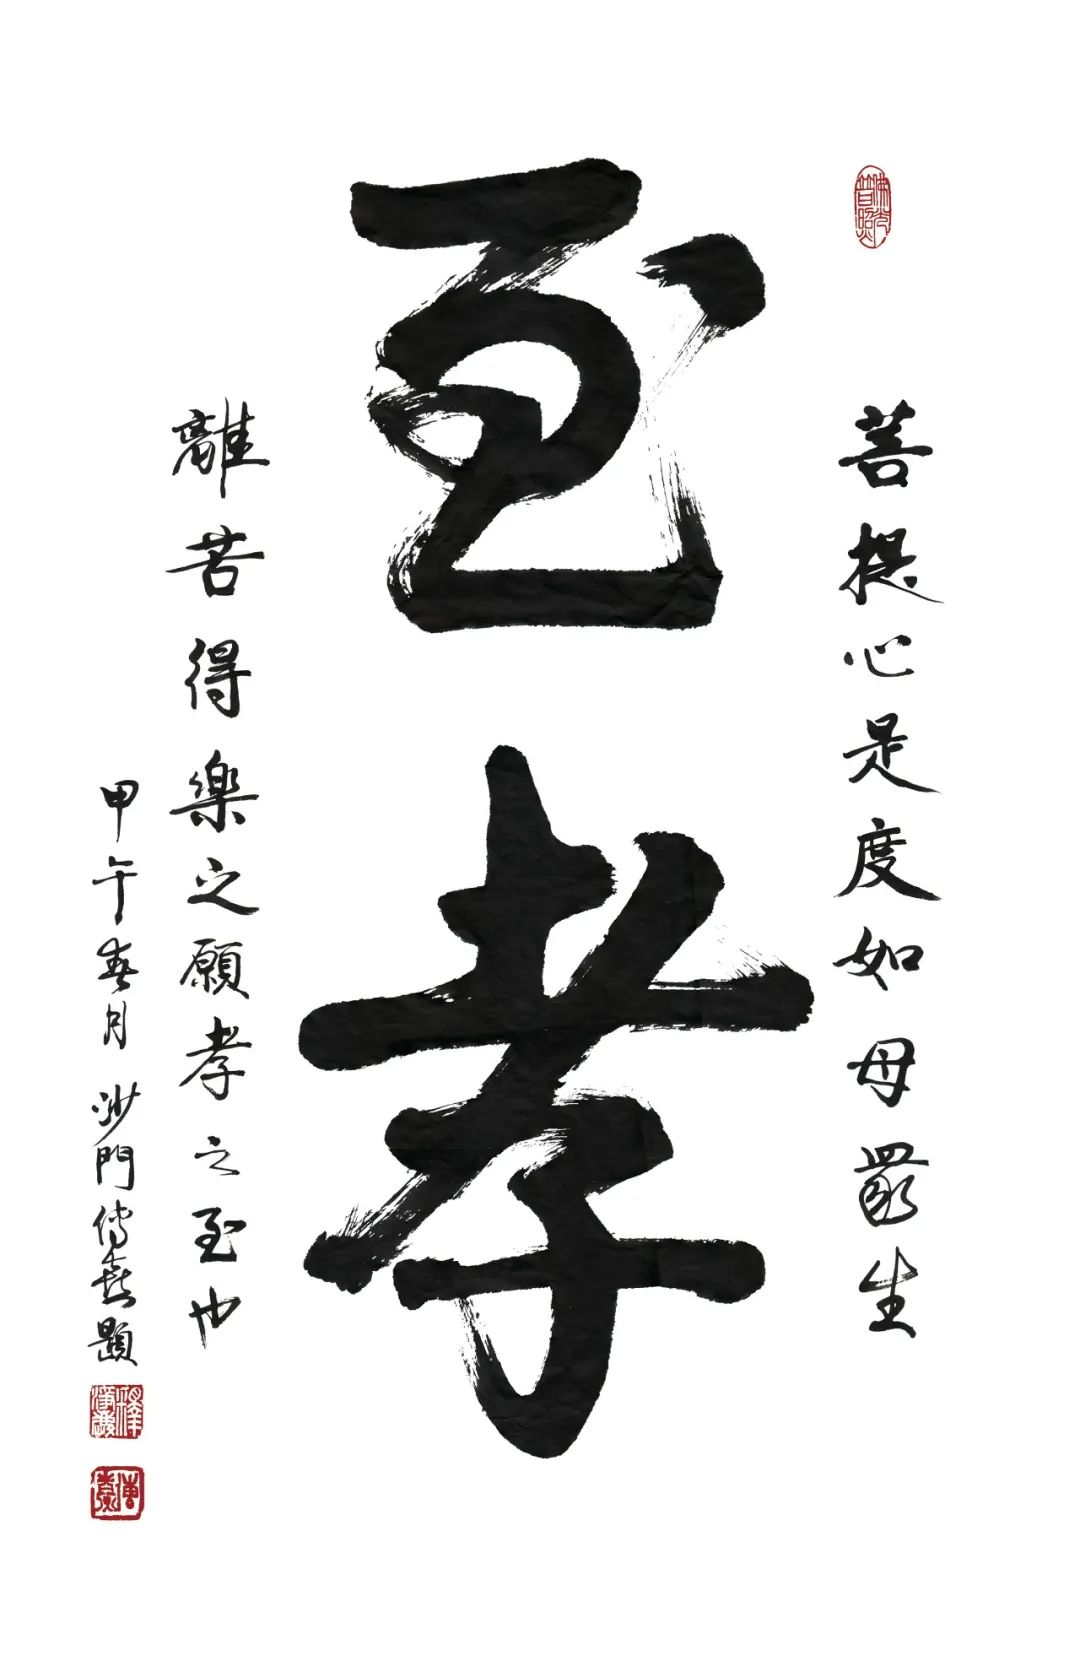 佛光普照
菩提心是度如母眾生
至孝
離苦得樂之願孝之至也
甲午春月沙門傳喜題